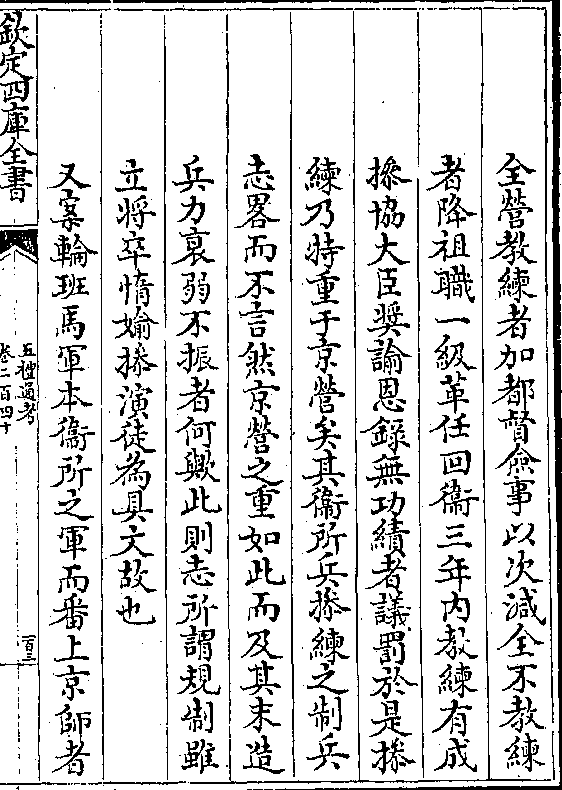 全營教練者加都督僉事以次減全不教練
者降祖職一級革任回衞三年內教練有成
操協大臣奬諭恩錄無功績者議罰於是操
練乃特重于京營矣其衞所兵操練之制兵
志畧而不言然京營之重如此而及其末造
兵力衰弱不振者何歟此則志所謂規制雖
立將卒惰媮操演徒為具文故也
又案輪班馬軍本衞所之軍而番上京師者
欽定四庫全書
五禮通考
卷二百四十
百三